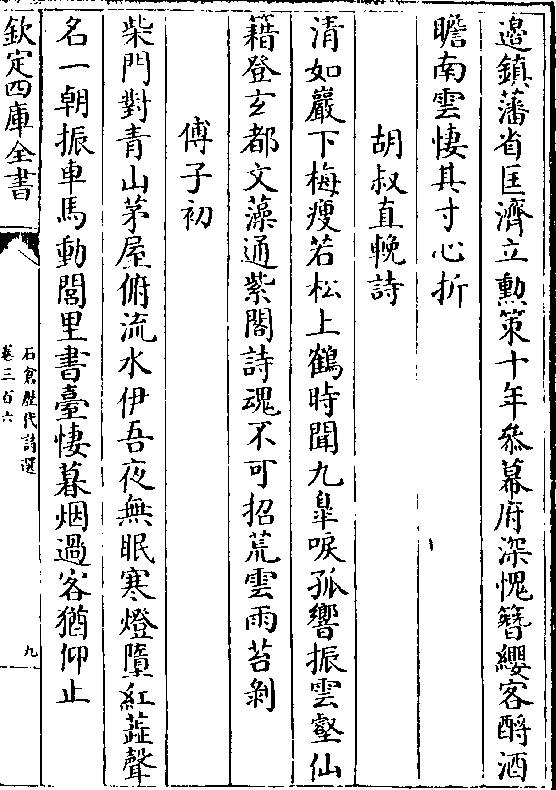 邉鎮藩省匡濟立勲䇿十年叅幕府深愧簪纓客酹酒
瞻南雲悽其寸心折
胡叔直輓詩
清如巖下梅瘦若松上鶴時聞九臯唳孤響振雲壑仙
籍登玄都文藻通紫閣詩魂不可招荒雲雨苔剝
傅子初
柴門對青山茅屋俯流水伊吾夜無眠寒燈墮紅蘂聲
名一朝振車馬動閭里書臺悽暮烟過客猶仰止
欽定四庫全書
石倉歴代詩選
卷三百六
九